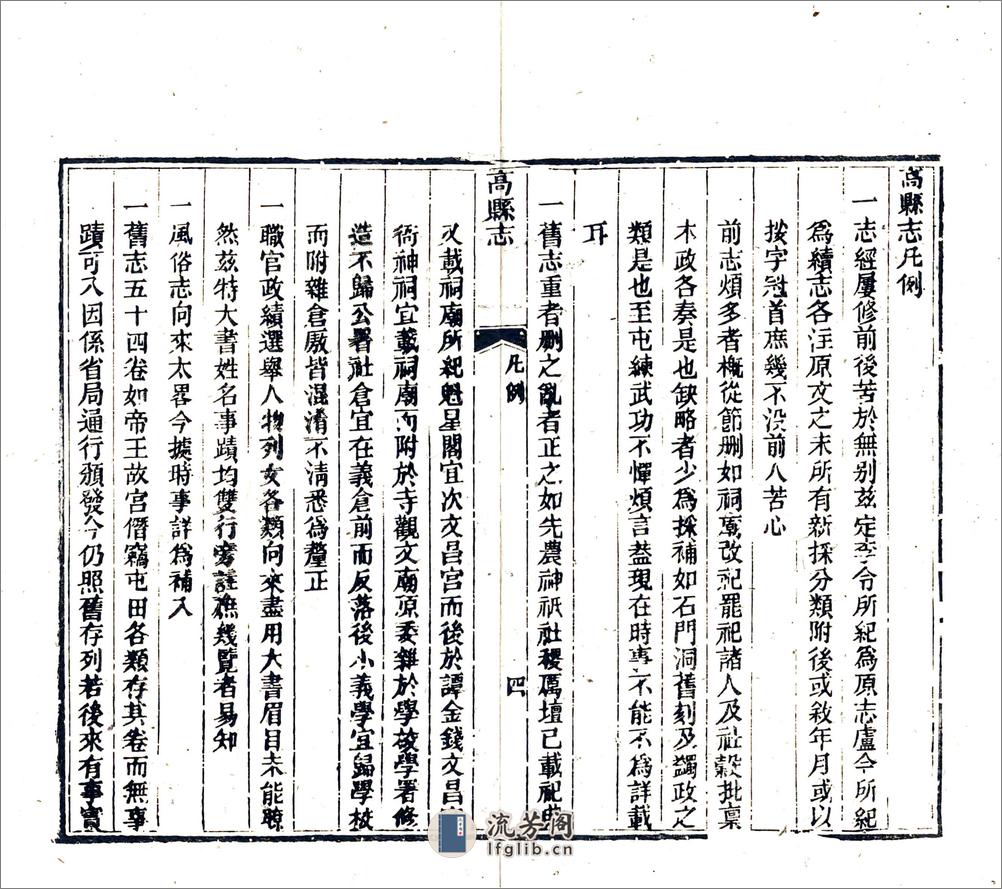 高縣志凡例
一志經屢修前後苦於無别兹定李令所紀為原志盧令所紀
為續志各注原文之末所有新採分類附後或敘年月或以
按字冠首庶幾不没前人苦心
前志煩多者概從節删如祠廟改祀罷祀諸人及社穀批稟
木政各奏是也缺略者少為採補如石門洞舊刻及蠲政之
類是也至屯練武功不憚煩言葢現在時事不能不為詳載
耳
一舊志重者删之亂者正之如先農神祇社稷厲壇已載祀典
高縣志
凡例
四
又載祠廟所紀魁星閣宜次文昌宫而後於譚金錢文昌
衙神祠宜載祠廟而附於寺觀文廟原委雜於學故學署修
造不歸公署社倉宜在義倉前而反落後小義學宜歸學校
而附雜倉厫皆混淆不清悉為釐正
一職官政績選舉人物列女各類向來盡用大書眉目未能瞭
然兹特大書姓名事蹟均雙行旁註庶幾覽者易知
一風俗志向來太畧今據時事詳為補入
一舊志五十四卷如帝王故宫僭竊屯田各類存其卷而無事
蹟可入因係省局通行頒發今仍照舊存列若後來有事實
流芳閣
lfglib.cn